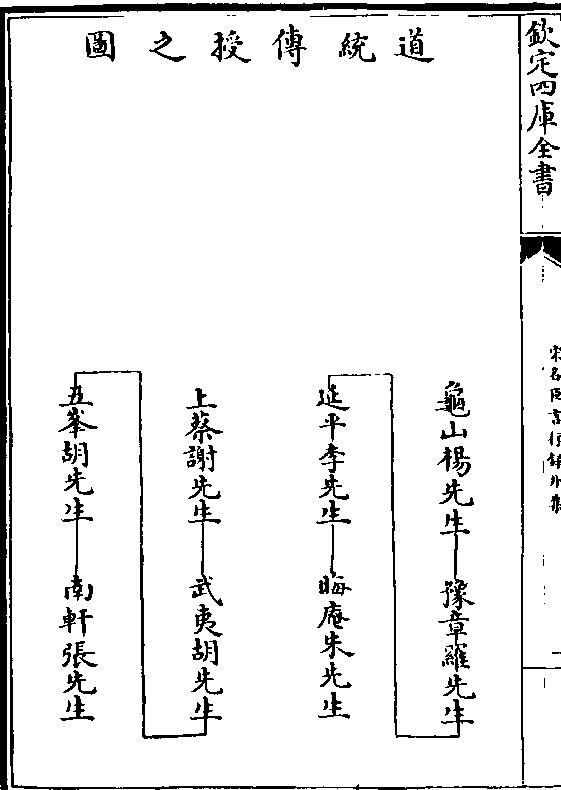 欽定四庫全書
宋名臣言行録外集
道統傳授之圖
龜山楊先生
豫章羅先生
延平李先生
晦庵朱先生
上蔡謝先生
武夷胡先生
五峯胡先生
南軒張先生